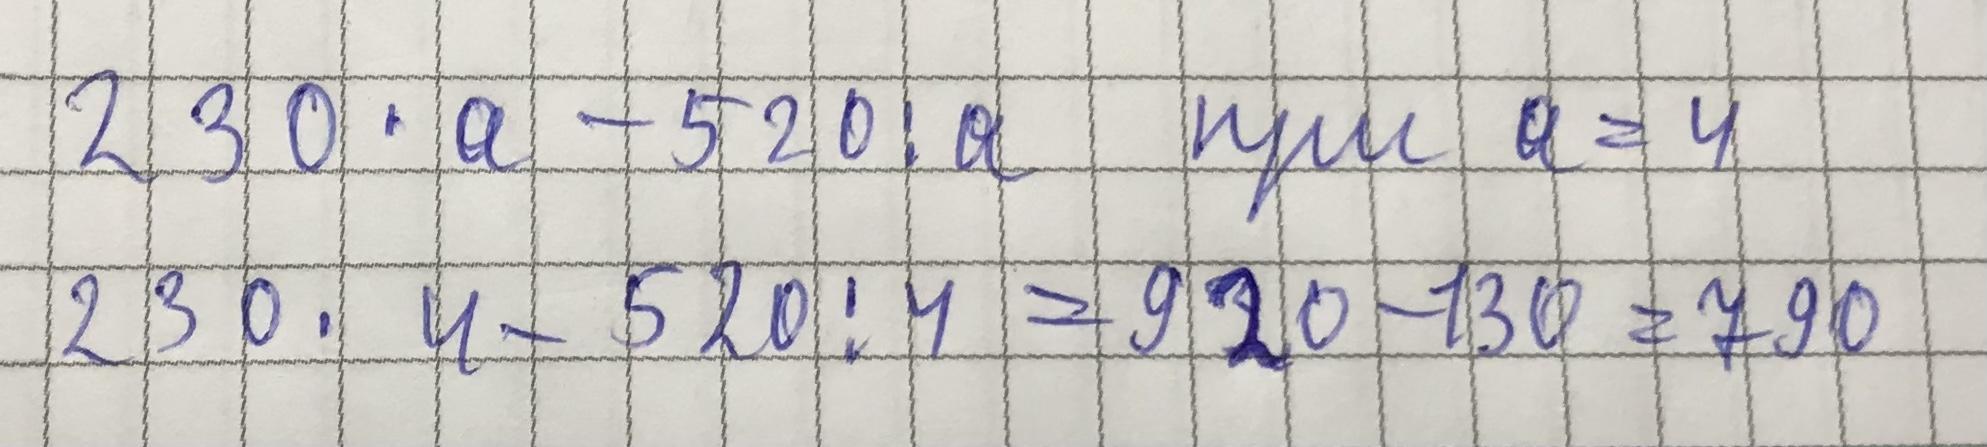 230 · a - 520 : a при a = 4
230 · 4 - 520 : 4 = 920 - 130 = 790